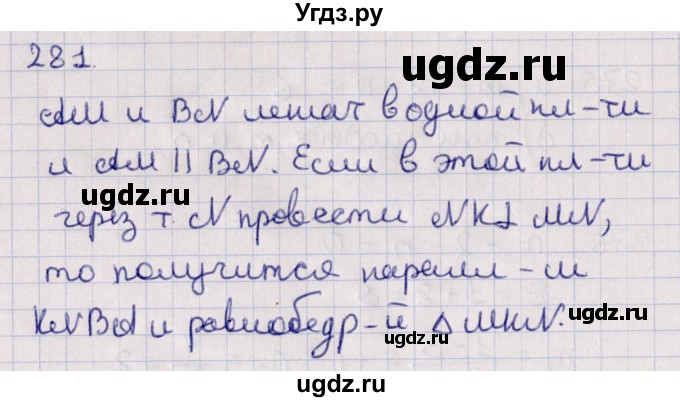 Угдз.ру
281.
AM и BN лежат в одной пл-ти
и AM || BN. Если в этой пл-ти
через т. N провести NK⊥MN,
то получится паралл-м
KNBA и равнобедр-й Δ MKN.
ugdz.ru
ugdz.ru
ugdz.ru
ugdz.ru
ugdz.ru
ugdz.ru
ugdz.ru